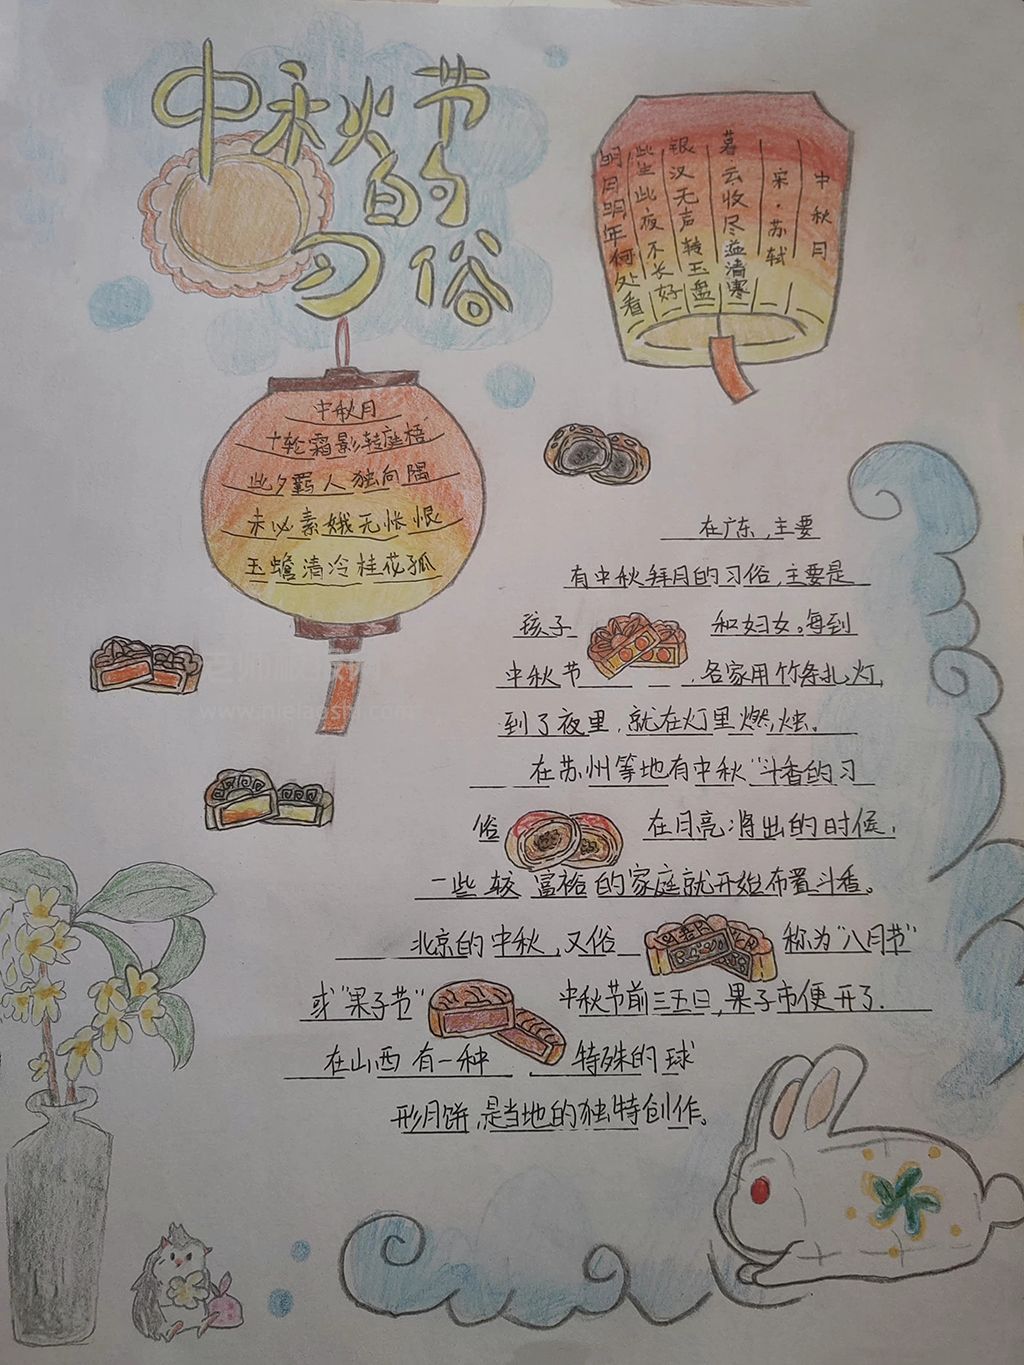 中秋节
的
习俗
中秋月
宋·苏轼
暮云收尽益清寒
银汉无声转玉盘
此生此夜不长好
明月明年何处看
中秋月
十轮霜影转庭梧
此夕羁人独向隅
未必素娥无怅恨
玉蟾清冷桂花孤
在广东,主要
有中秋拜月的习俗,主要是
孩子 和妇女。每到
中秋节 ,各家用竹条扎灯,
到了夜里,就在灯里燃烛。
在苏州等地有中秋"斗香的习
俗 在月亮将出的时候,
一些较富裕的家庭就开始布置斗香。
北京的中秋,又俗 称为"八月节"
或"果子节" 中秋节前三五日,果子市便开了.
在山西有一种 特殊的球
形月饼,是当地的独特创作。